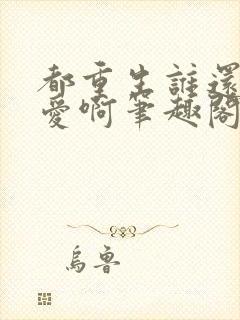 都重生誰還
愛啊筆趣閣
烏魯